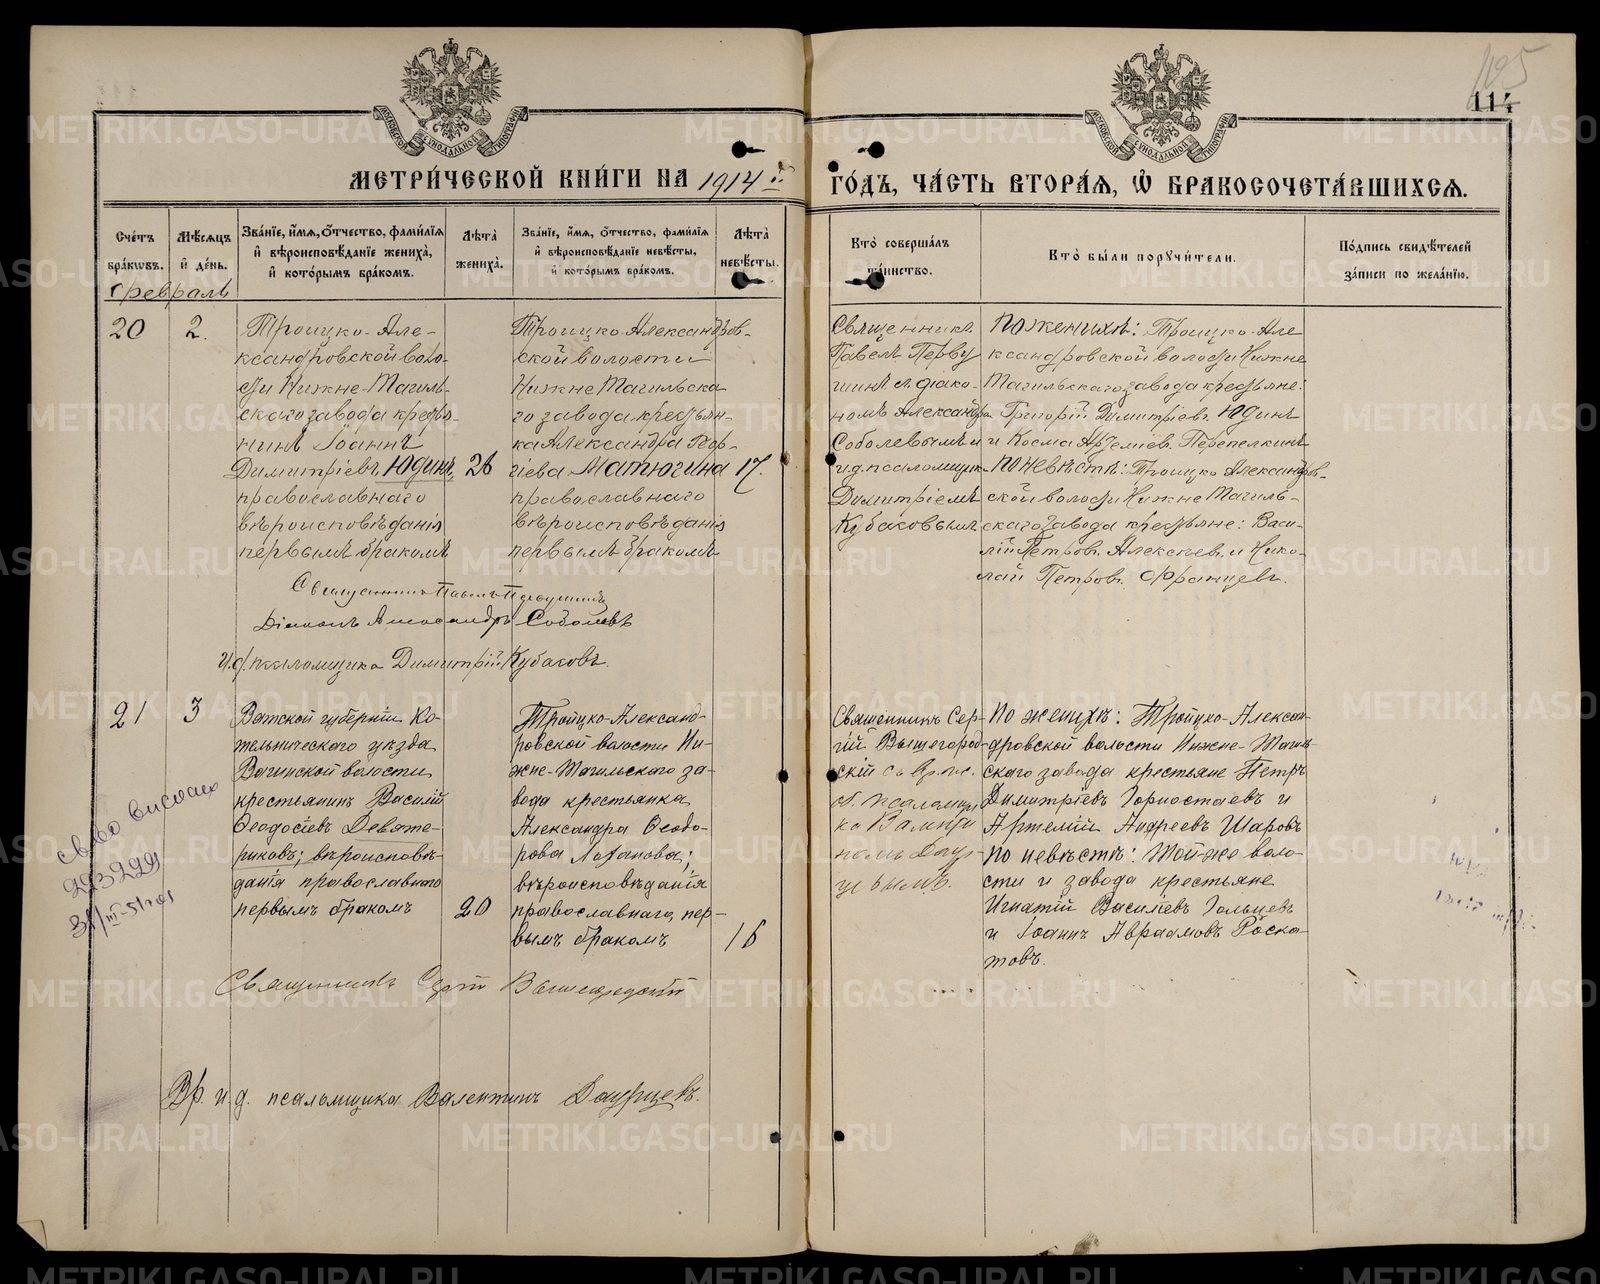 125
114
МЕТРИ́ЧЕСКОЙ КНИ́ГИ НА 1914 й
ГО́ДЪ, ЧА́СТЬ ВТОРА́Я, Ѡ БРАКОСОЧЕТА́ВШИХСЯ.
Сче́тъ бра́кѡвъ.
Мѣ́сяцъ и де́нь.
Зва́нїе, и́мя, о́тчество, фами́лїя и вѣроисповѣ́данїе жениха̀, и кото́рымъ бра́комъ.
Лѣта̀ жениха̀.
Зва́нїе, и́мя, о́тчество, фами́лїя и вѣроисповѣ́данїе невѣ́сты, и кото́рымъ бра́комъ.
Лѣта̀ невѣ́сты.
Кто̀ соверша́лъ та́инство.
Кто̀ бы́ли порꙋчи́тели.
По́дпись свидѣ́телей за́писи по жела́нїю.
Февраль
20
2.
Троицко-Але-
ксандровской воло-
сти Нижне-Тагиль-
скаго завода кресть-
нинъ Іоаннъ
Димитріевъ Юдинъ,
православнаго
вѣроисповѣданія
первымъ бракомъ
26
Троицко-Александров-
ской волости
Нижне Тагильска-
го завода крестьян-
ка Александра Геор-
гіева Матюгина
православнаго
вѣроисповѣданія
первымъ бракомъ
17.
Священникъ
Павелъ Перву
шинъ съ діако-
номъ Александр
Соболевымъ и
и.д. псаломщик
Димитріемъ
Кубаковымъ
По женихѣ: Троицко-Але
ксандровской волости Нижне
Тагильскаго завода крестьяне:
Григорій Димитріев. Юдинъ
и Косма Артеміев. Перепелкинъ
По невѣстѣ: Троицко Александров-
ской волости Нижне Тагиль-
скаго завода крестьяне: Васи-
лій Петров. Алексѣев. и Нико-
лай Петров. Францев.
Священникъ Павелъ Первушинъ
Діаконъ Александръ Соболевъ
И.д. псаломщика Димитрій Кубаковъ.
21
3
Вятской губерніи Ко-
тельническаго уѣзда
Вагинской волости
крестьянинъ Василій
Ѳеодосіевъ Девяте-
риковъ; вѣроисповѣ-
данія православнаго
первымъ бракомъ
20
Тройцко-Александ-
ровской волости Ни-
жне-Тагильскаго за-
вода крестьянка
Александра Ѳеодо-
рова Лоханова;
вѣроисповѣданія
православнаго, пер-
вымъ бракомъ
16
Священникъ Сер-
гій Вышегород-
скій съ вр. и.
д. псаломщи
ка Валенти
номъ Даур-
цевымъ.
По женихѣ: Тройцко-Алексан-
дровской волости Нижне-Тагиль-
скаго завода крестьяне Петръ
Димитріевъ Горностаевъ и
Артемій Андреевъ Шаровъ
По невѣстѣ: Той-же воло-
сти и завода крестьяне
Игнатій Василіевъ Гольцевъ
и Іоаннъ Авраамовъ Роска-
товъ.
св-во выслано
223229
31/III-51 год
Священникъ Сергій Вышегородскій
Вр. и. д. псаломщика Валентинъ Даурцевъ.
METRIKI.GASO-URAL.RU